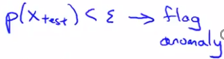 p(x_test) < ε → flag
anomaly